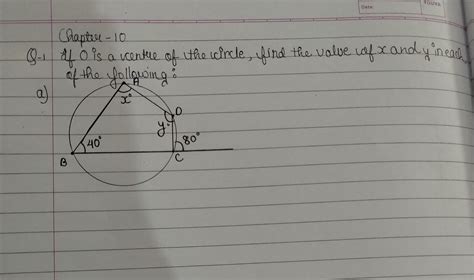 Date
YOUVA
Chapter - 10
Q-1 If O is a centre of the circle, find the value of x and y in each
of the following:
a)
A
x°
D
y°
80°
40°
B
C